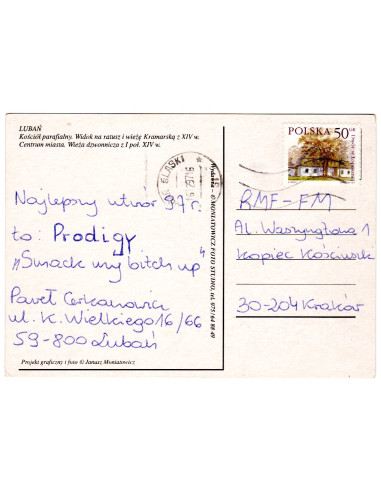 LUBAŃ
Kościół parafialny. Widok na ratusz i wieżę Kramarską z XIV w.
Centrum miasta. Wieża dzwonnicza z I poł. XIV w.
Najlepszy utwór 97 r.
to: Prodigy
„Smack my bitch up"
Paweł
ul. K. Wielkiego 16/66
59-800 Lubań
Projekt graficzny i foto © Janusz Moniatowicz
MONIATOWICZ FOTO STUDIO, tel. 075/64
ŚLĄSKI
POLSKA 50 gr
RMF-FM
Al. Waszyngtona 1
Kopiec Kościuszk
30-204 Kraków